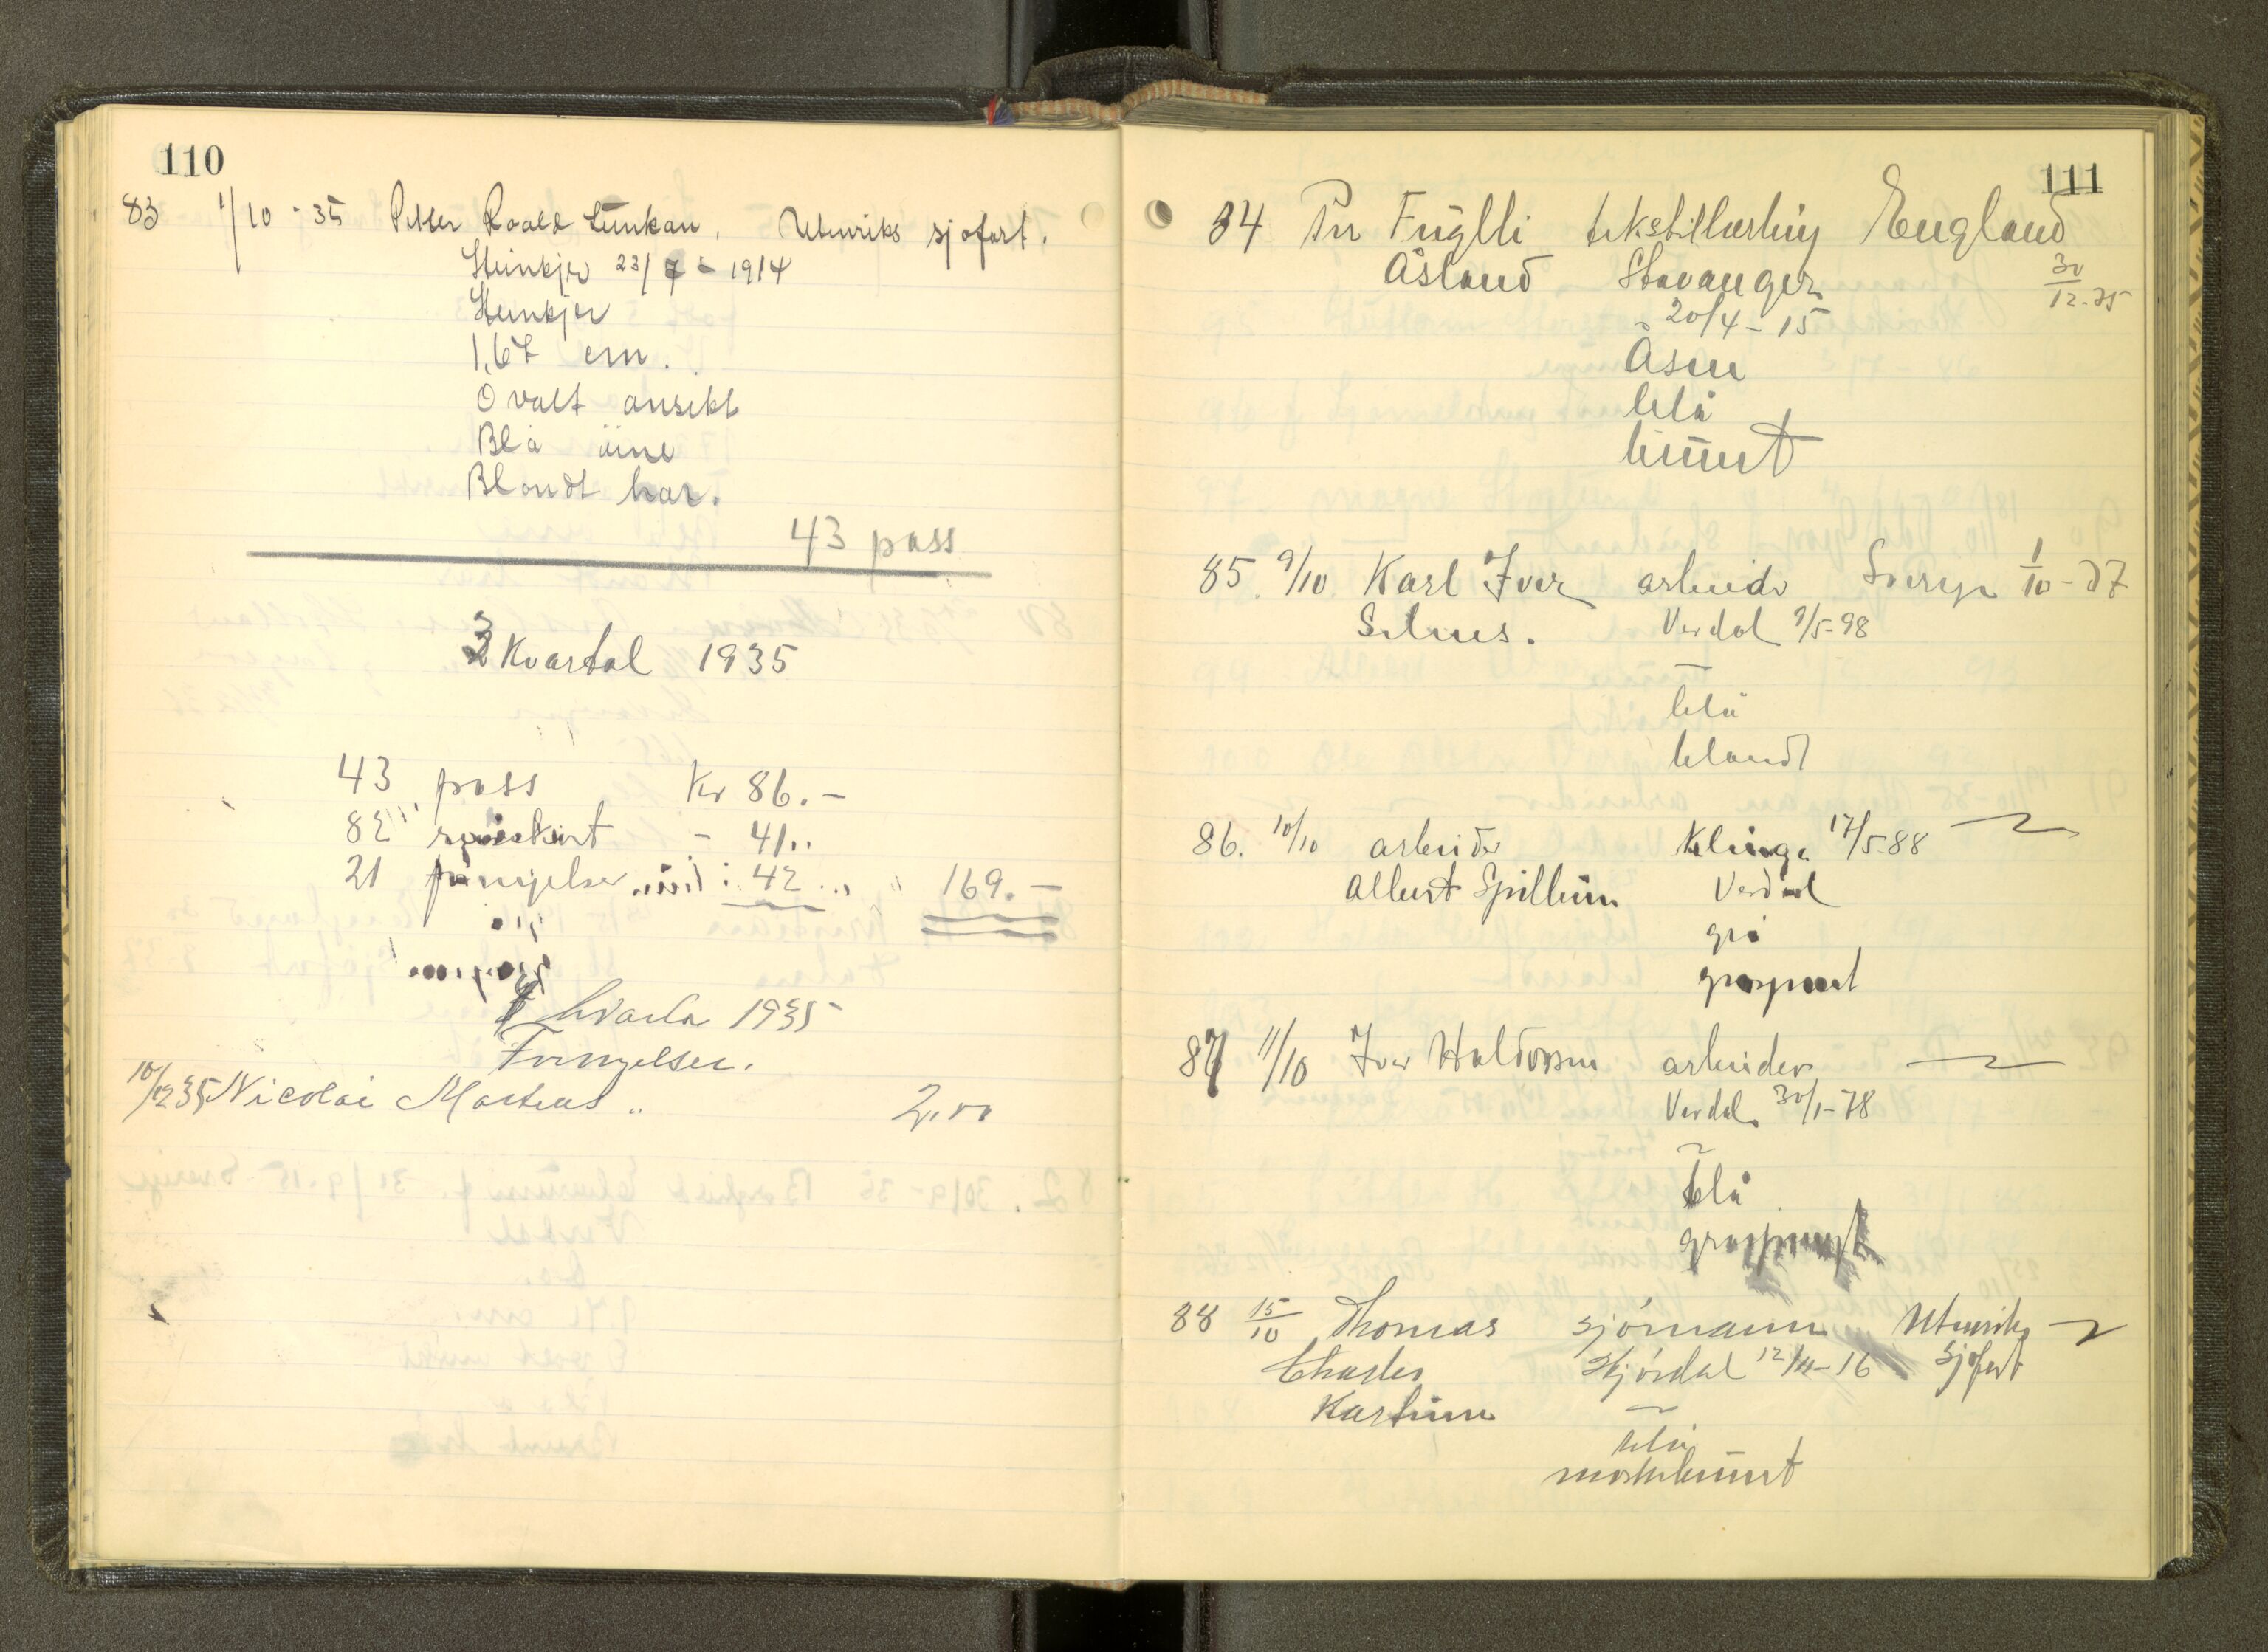 110
83 1/10 - 35 Petter Roald Lunkan, Utenriks sjøfart.
Steinkjer 23/7 - 1914
Steinkjer
1,67 cm.
Ovalt ansikt
Blå øine
Blondt hår.
43 pass
3 Kvartal 1935
43 pass Kr 86.-
82 - 41..
21 fornyelser 42 169.-
Kvartal 1935
Fornyelser.
10/12 35 Nicolai Marteus 2,00
111
84 Per Fuglli England
Åsland Stavanger 30/12-35
20/4 - 15
Åsen
blå
brunt
85. 9/10. Karl Iver arbeider Sverige 1/10 - 37
Selnes. Verdal 9/5-98
blå
blondt
86. 10/10 arbeider Klinga 17/5-88
Albert Spillum Verdal
grå
gråsprengt
87 11/10 Iver Haldorsen arbeider
Verdal 30/1-78
blå
gråsprengt
88 15/10 Thomas sjømann Utenriks
Charles Stjørdal 12/4-16 sjøfart
blå
mørkebrunt